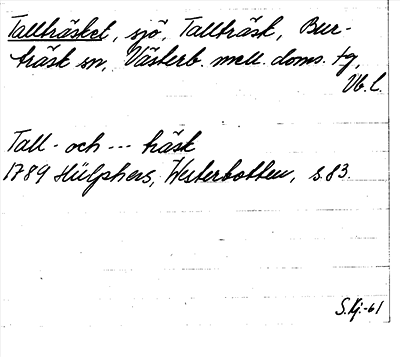 Tallträsket, sjö, Tallträsk, Bur-
träsk sn, Västerb. mell. doms. tg,
Vb. l.
Tall- och --- träsk
1789 Hülphers, Westerbotten, s 83.
S.Kj.-61